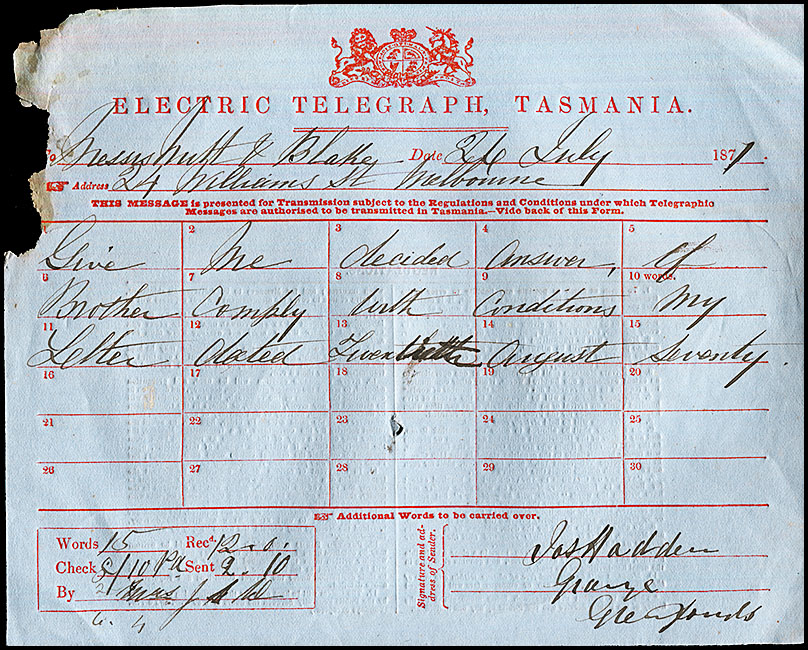 ELECTRIC TELEGRAPH, TASMANIA.
Messrs & Blake Date 26 July 1871.
Address 24 Williams St Melbourne
THIS MESSAGE is presented for Transmission subject to the Regulations and Conditions under which Telegraphic
Messages are authorised to be transmitted in Tasmania.—Vide back of this Form.
2 3 4 5
Give Me decided answer, if
6 7 8 9 10 words.
Brother Comply with Conditions My
11 12 13 14 15
Letter dated Twentieth August Seventy.
16 17 18 19 20
21 22 23 24 25
26 27 28 29 30
Additional Words to be carried over.
Words 15 Recd. 12.0.
Check 5/10 Pd Sent 2.10
By
Signature and address of Sender.
Jas Hadden
Grange